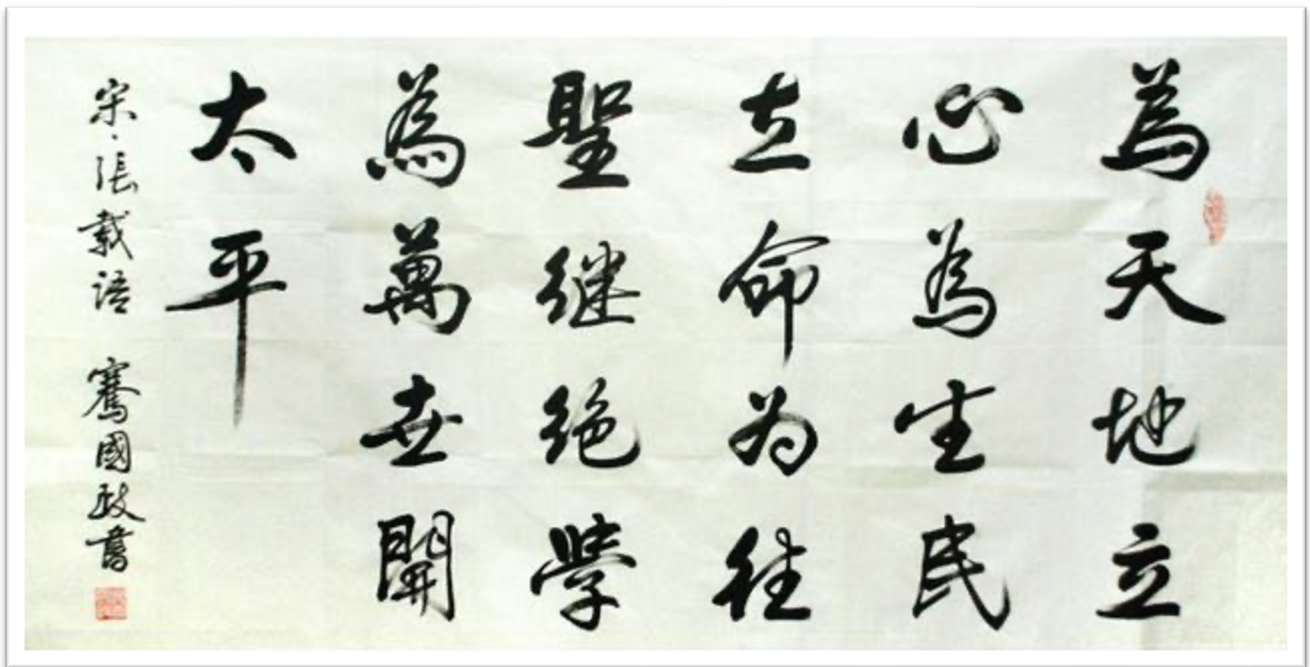 為天地立
心為生民
立命为往
聖继绝學
為萬世開
太平
宋·張载语 骞國政書